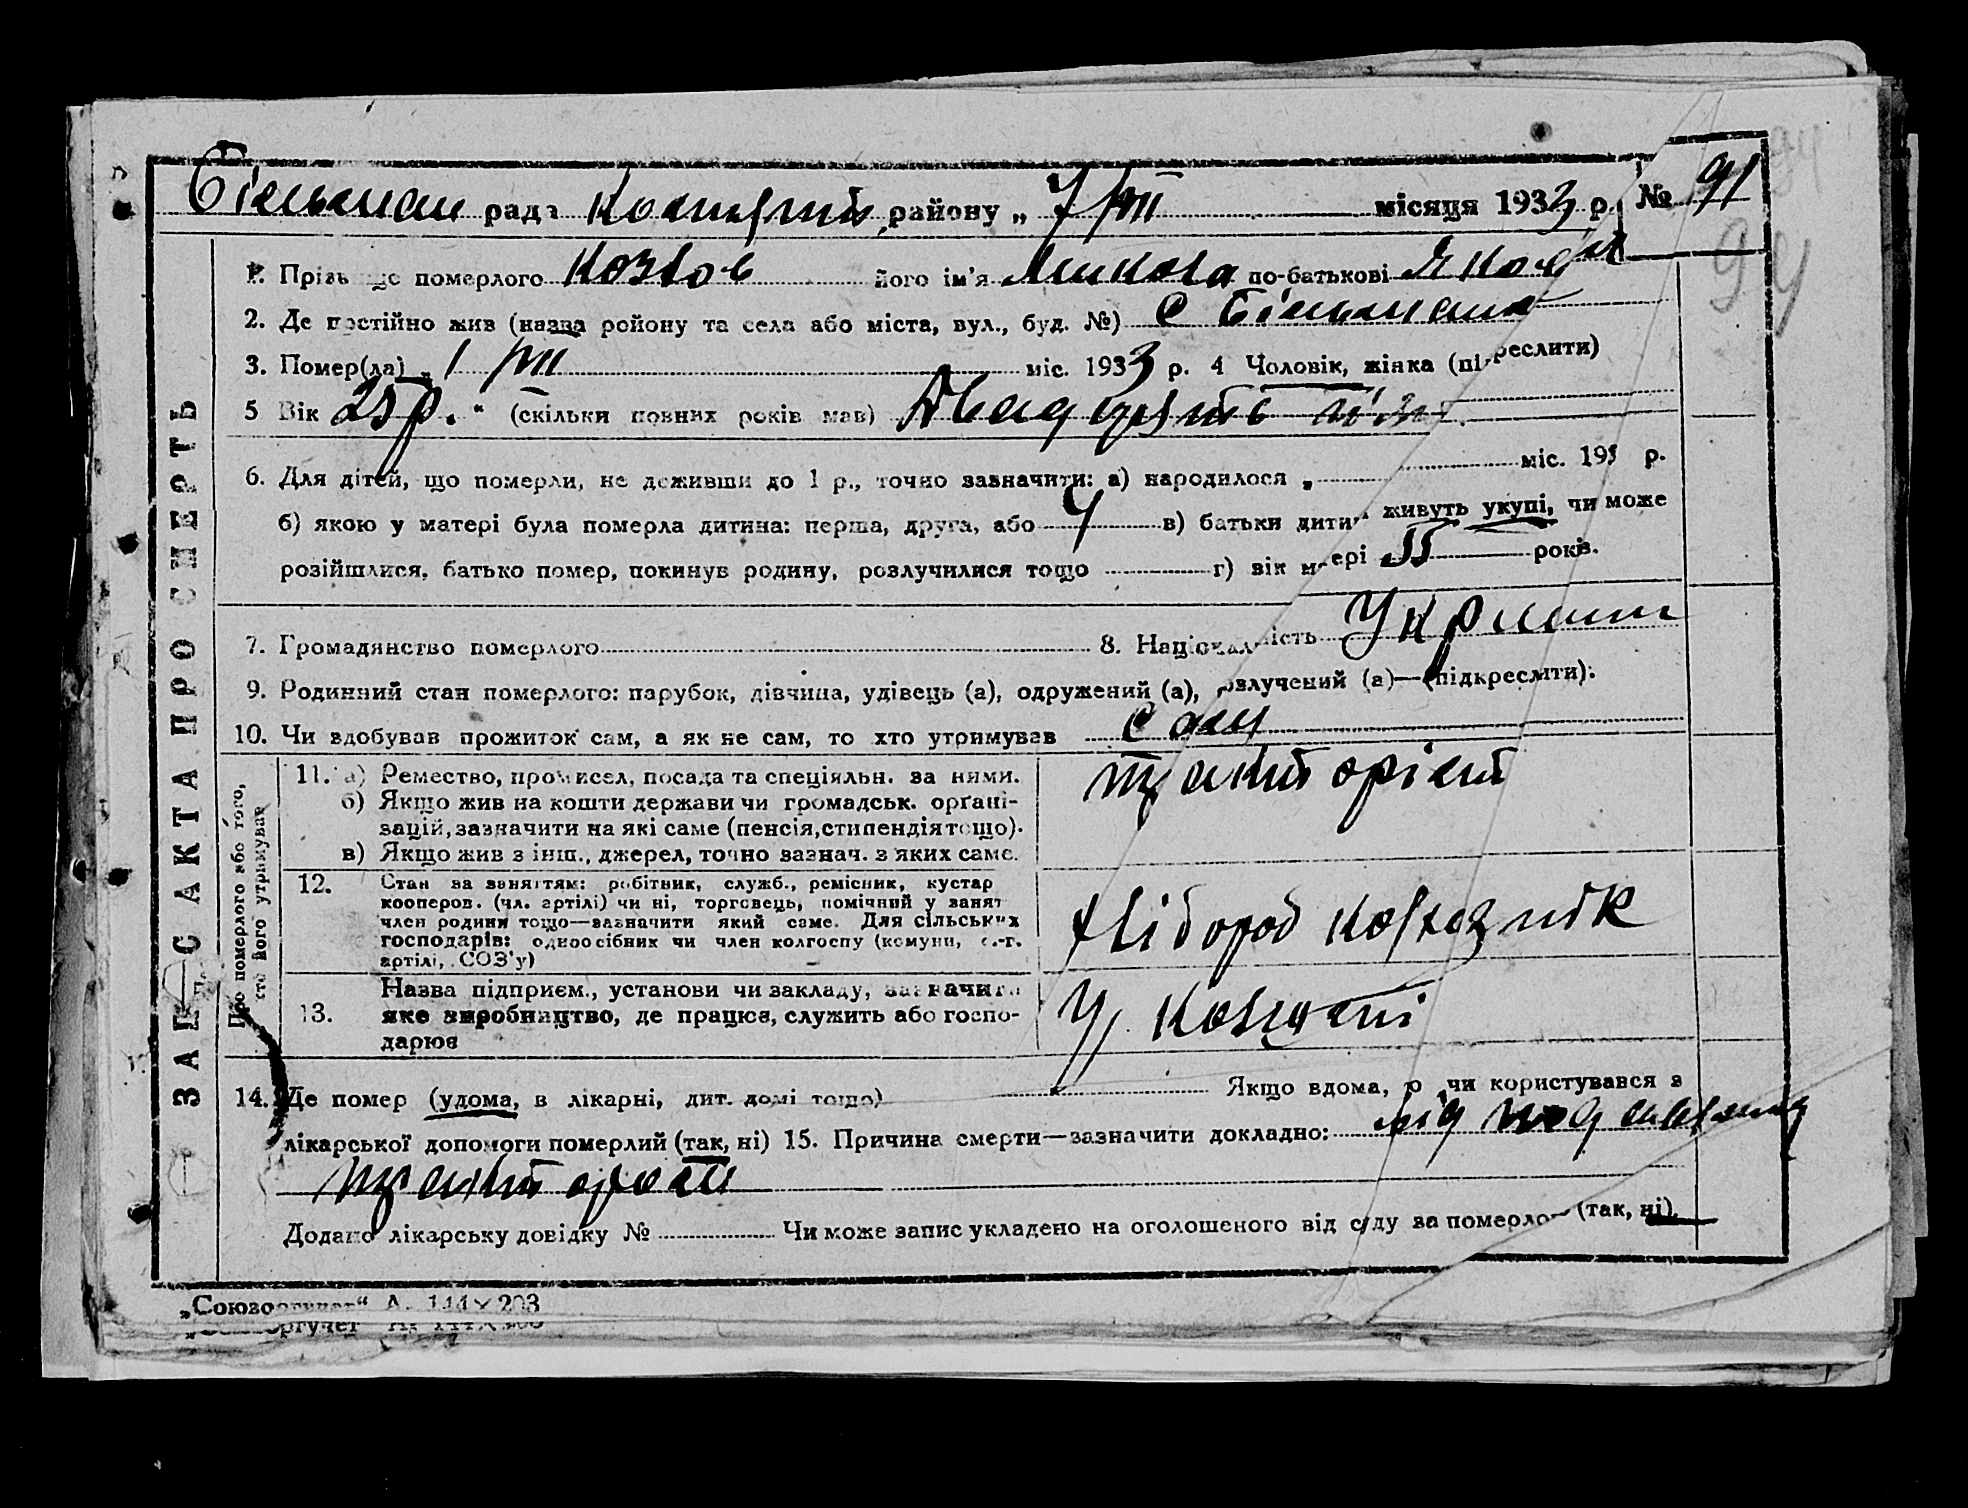 рада района „ 7/VII місяця 1933 р. № 91
94
1. Прізвище померлого Козлов його ім'я Микола по-батькові Яков
2. Де постійно жив (назва району та села або міста, вул., буд. №) с Більманка
3. Помер(ла) „ 1 /VII міс. 1933 р. 4 Чоловік, жінка (підкреслити)
5 Вік 25 р. “ (скільки повних років мав) Двадцять
6. Для дітей, що померли, не доживши до 1 р., точно зазначити: а) народилося „ міс. 193 р.
б) якою у матері була померла дитина: перша, друга, або 4 в) батьки дитини живуть укупі, чи може
розійшлися, батько помер, покинув родину, розлучилися тощо г) вік матері 55 років.
7. Громадянство померлого 8. Національність
9. Родинний стан померлого: парубок, дівчина, удівець (а), одружений (а), розлучений (а)—(підкреслити):
10. Чи здобував прожиток сам, а як не сам, то хто утримував сам
ЗАПИС АКТА ПРО СМЕРТЬ
Про померлого або того, хто його утримував
11. а) Ремество, промисел, посада та спеціяльн. за ними.
б) Якщо жив на кошти держави чи громадськ. орґані-
зацій, зазначити на які саме (пенсія, стипендія тощо).
в) Якщо жив з інш., джерел, точно зазнач. з яких саме.
12. Стан за заняттям: робітник, служб., ремісник, кустар
кооперов. (чл. артілі) чи ні, торговець, помічний у занят
член родини тощо—зазначити який саме. Для сільських
господарів: одноосібник чи член колгоспу (комуни, с.-г.
артілі, СОЗ'у)
13. Назва підприєм., установи чи закладу, зазначити
яке виробництво, де працює, служить або госпо-
дарює
У колгоспі
14. Де помер (удома, в лікарні, дит. домі тощо) Якщо вдома, то чи користувався з
лікарської допомоги померлий (так, ні) 15. Причина смерти—зазначити докладно: під
Додано лікарську довідку № Чи може запис укладено на оголошеного від суду за померлого (так, ні).
„Союзоргучет“ А. 144×203